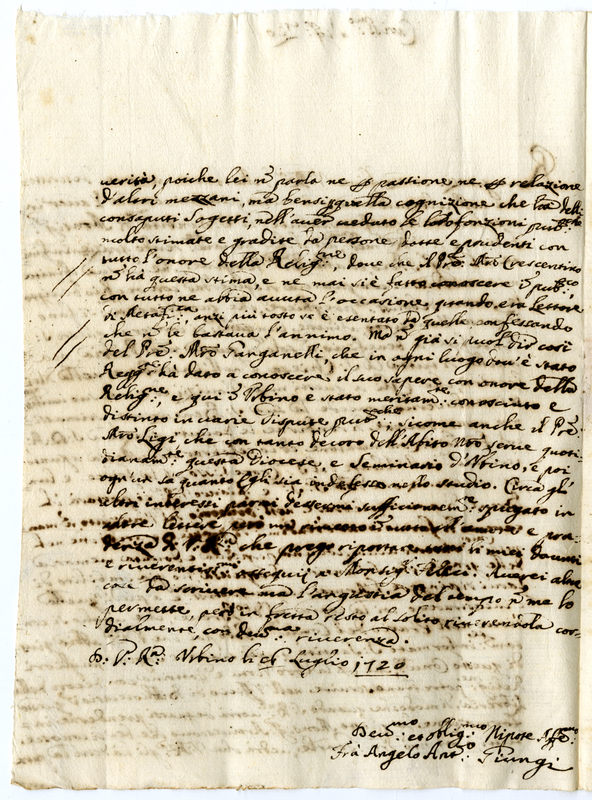 verità, poiche lei ñ parla ne p passione ne p relazione
d'altri mezzani, mà bensi p quella cognizione che hà delli
consaputi Sogetti, nell'aver veduto le loro fonzioni pub:che
molto stimate e gradite da persone dotte e prudenti con
tutto l'onore della Relig:ne, dove che il Prẽ: Mrõ Crescentino
ñ hà questa stima, e ne mai si è fatto conoscere ĩ pub:co
con tutto ne abbia avuta l'occasione quando era lettore
di Metaf:ca, anzi più tosto se è esentato da quelle confessando
che ñ le bastava l'annimo. Mà ñ già si puol dir così
del Prẽ: Mrõ Ganganelli, che in ogni luogo dov'è stato
Regg:e hà dato a conoscere il suo sapere con onore della
Relig:ne, e qui ĩ Urbino è stato meritam:te conosciuto e
distinto in varie dispute pub:che, sicome anche il Prẽ:
Mrõ Ligi che con tanto decoro dell'Abito Nrõ serve quoti-
dianam:te questa Diocese, e Seminario d'Urbino, e poi
ogn'un sà quanto Egli sia indefesso nello studio. Circa gl'
altri interessi parmi d'essermi sufficientem:te spiegato in
altre lettere, però mi rimetto ĩ tutto all'amore e pru-
denza di V: R:a che prego riportare li miei dovuti
e riverentis:mi ossequij a Monsig:
cose da scrivere ma l'angustia del tempo ñ me lo
permette, però in fretta resto al solito riverendola cor-
dialmente, con dev:ma riverenza.
D: V: R:a Urbino li Luglio 1720
Dev:mo et oblig:mo Nipote Aff:mo
Frà Angelo Ant:o Giungi